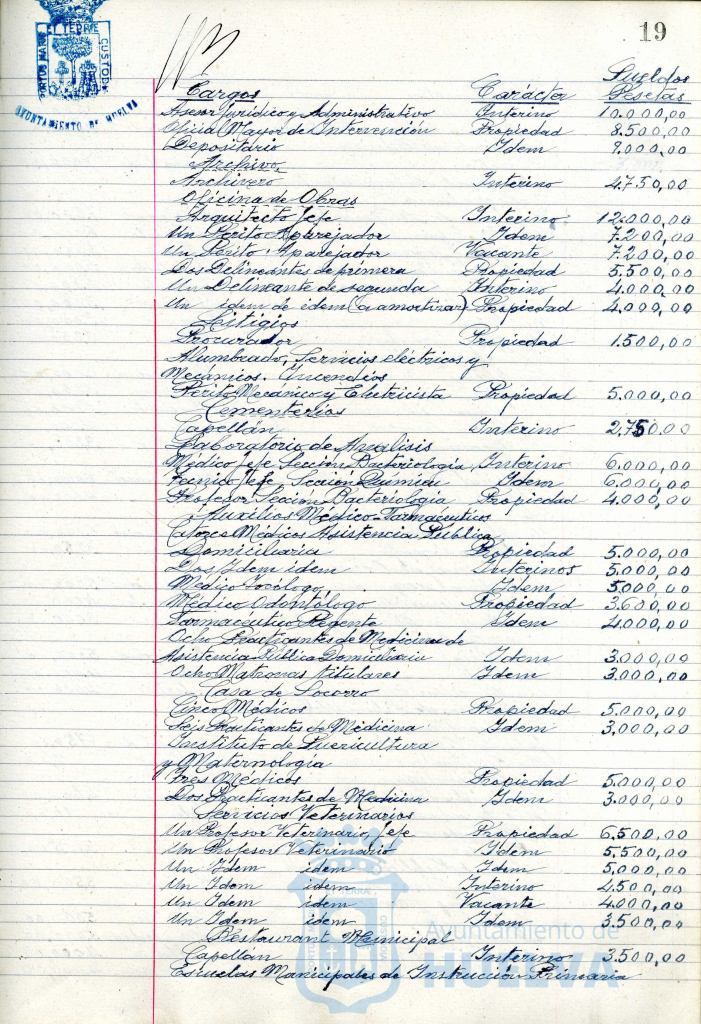 PORTUS MARIS ET TERRE CUSTODIA
AYUNTAMIENTO DE HUELVA
19
Cargos Carácter Sueldos Pesetas
Asesor Jurídico y Administrativo Interino 10.000,00
Oficial Mayor de Intervención Propiedad 8.500,00
Depositario Idem 9.000,00
Archivo.
Archivero Interino 4.750,00
Oficina de Obras
Arquitecto Jefe Interino 12.000,00
Un Perito Aparejador Idem 7.200,00
Un Perito Aparejador Vacante 7.200,00
Dos Delineantes de primera Propiedad 5.500,00
Un Delineante de segunda Interino 4.000,00
Un idem de idem (a amortizar) Propiedad 4.000,00
Litigios
Procurador Propiedad 1.500,00
Alumbrado, Servicios eléctricos y
Mecánicos. Incendios
Perito Mecánico y Electricista Propiedad 5.000,00
Cementerios
Capellán Interino 2.750,00
Laboratorio de Analisis
Médico Jefe Sección Bacteriología Interino 6.000,00
Tecnico Jefe Sección Quimica Idem 6.000,00
Profesor Sección Bacteriologia Propiedad 4.000,00
Auxilios Médico-Farmacéuticos
Catorce Médicos Asistencia Pública
Domiciliaria Propiedad 5.000,00
Dos Idem idem Interinos 5.000,00
Medico Tocólogo Idem 5.000,00
Médico Odontólogo Propiedad 3.600,00
Farmaceutico Regente Idem 4.000,00
Ocho Practicantes de Medicina de
Asistencia Pública Domiciliaria Idem 3.000,00
Ocho Matronas titulares Idem 3.000,00
Casa de Socorro
Cinco Médicos Propiedad 5.000,00
Seis Practicantes de Medicina Idem 3,000,00
Instituto de Puericultura
y Maternología
Tres Médicos Propiedad 5.000,00
Dos Practicantes de Medicina Idem 3.000,00
Servicios Veterinarios
Un Profesor Veterinario, Jefe Propiedad 6.500,00
Un Profesor Veterinario Idem 5.500,00
Un Idem idem Idem 5.000,00
Un Idem idem Interino 4.500,00
Un Idem idem Vacante 4.000,00
Un Idem idem Idem 3.500,00
Restaurant Municipal
Capellán Interino 3.500,00
Escuelas Municipales de Instrucción Primaria
Ayuntamiento de
HUELVA